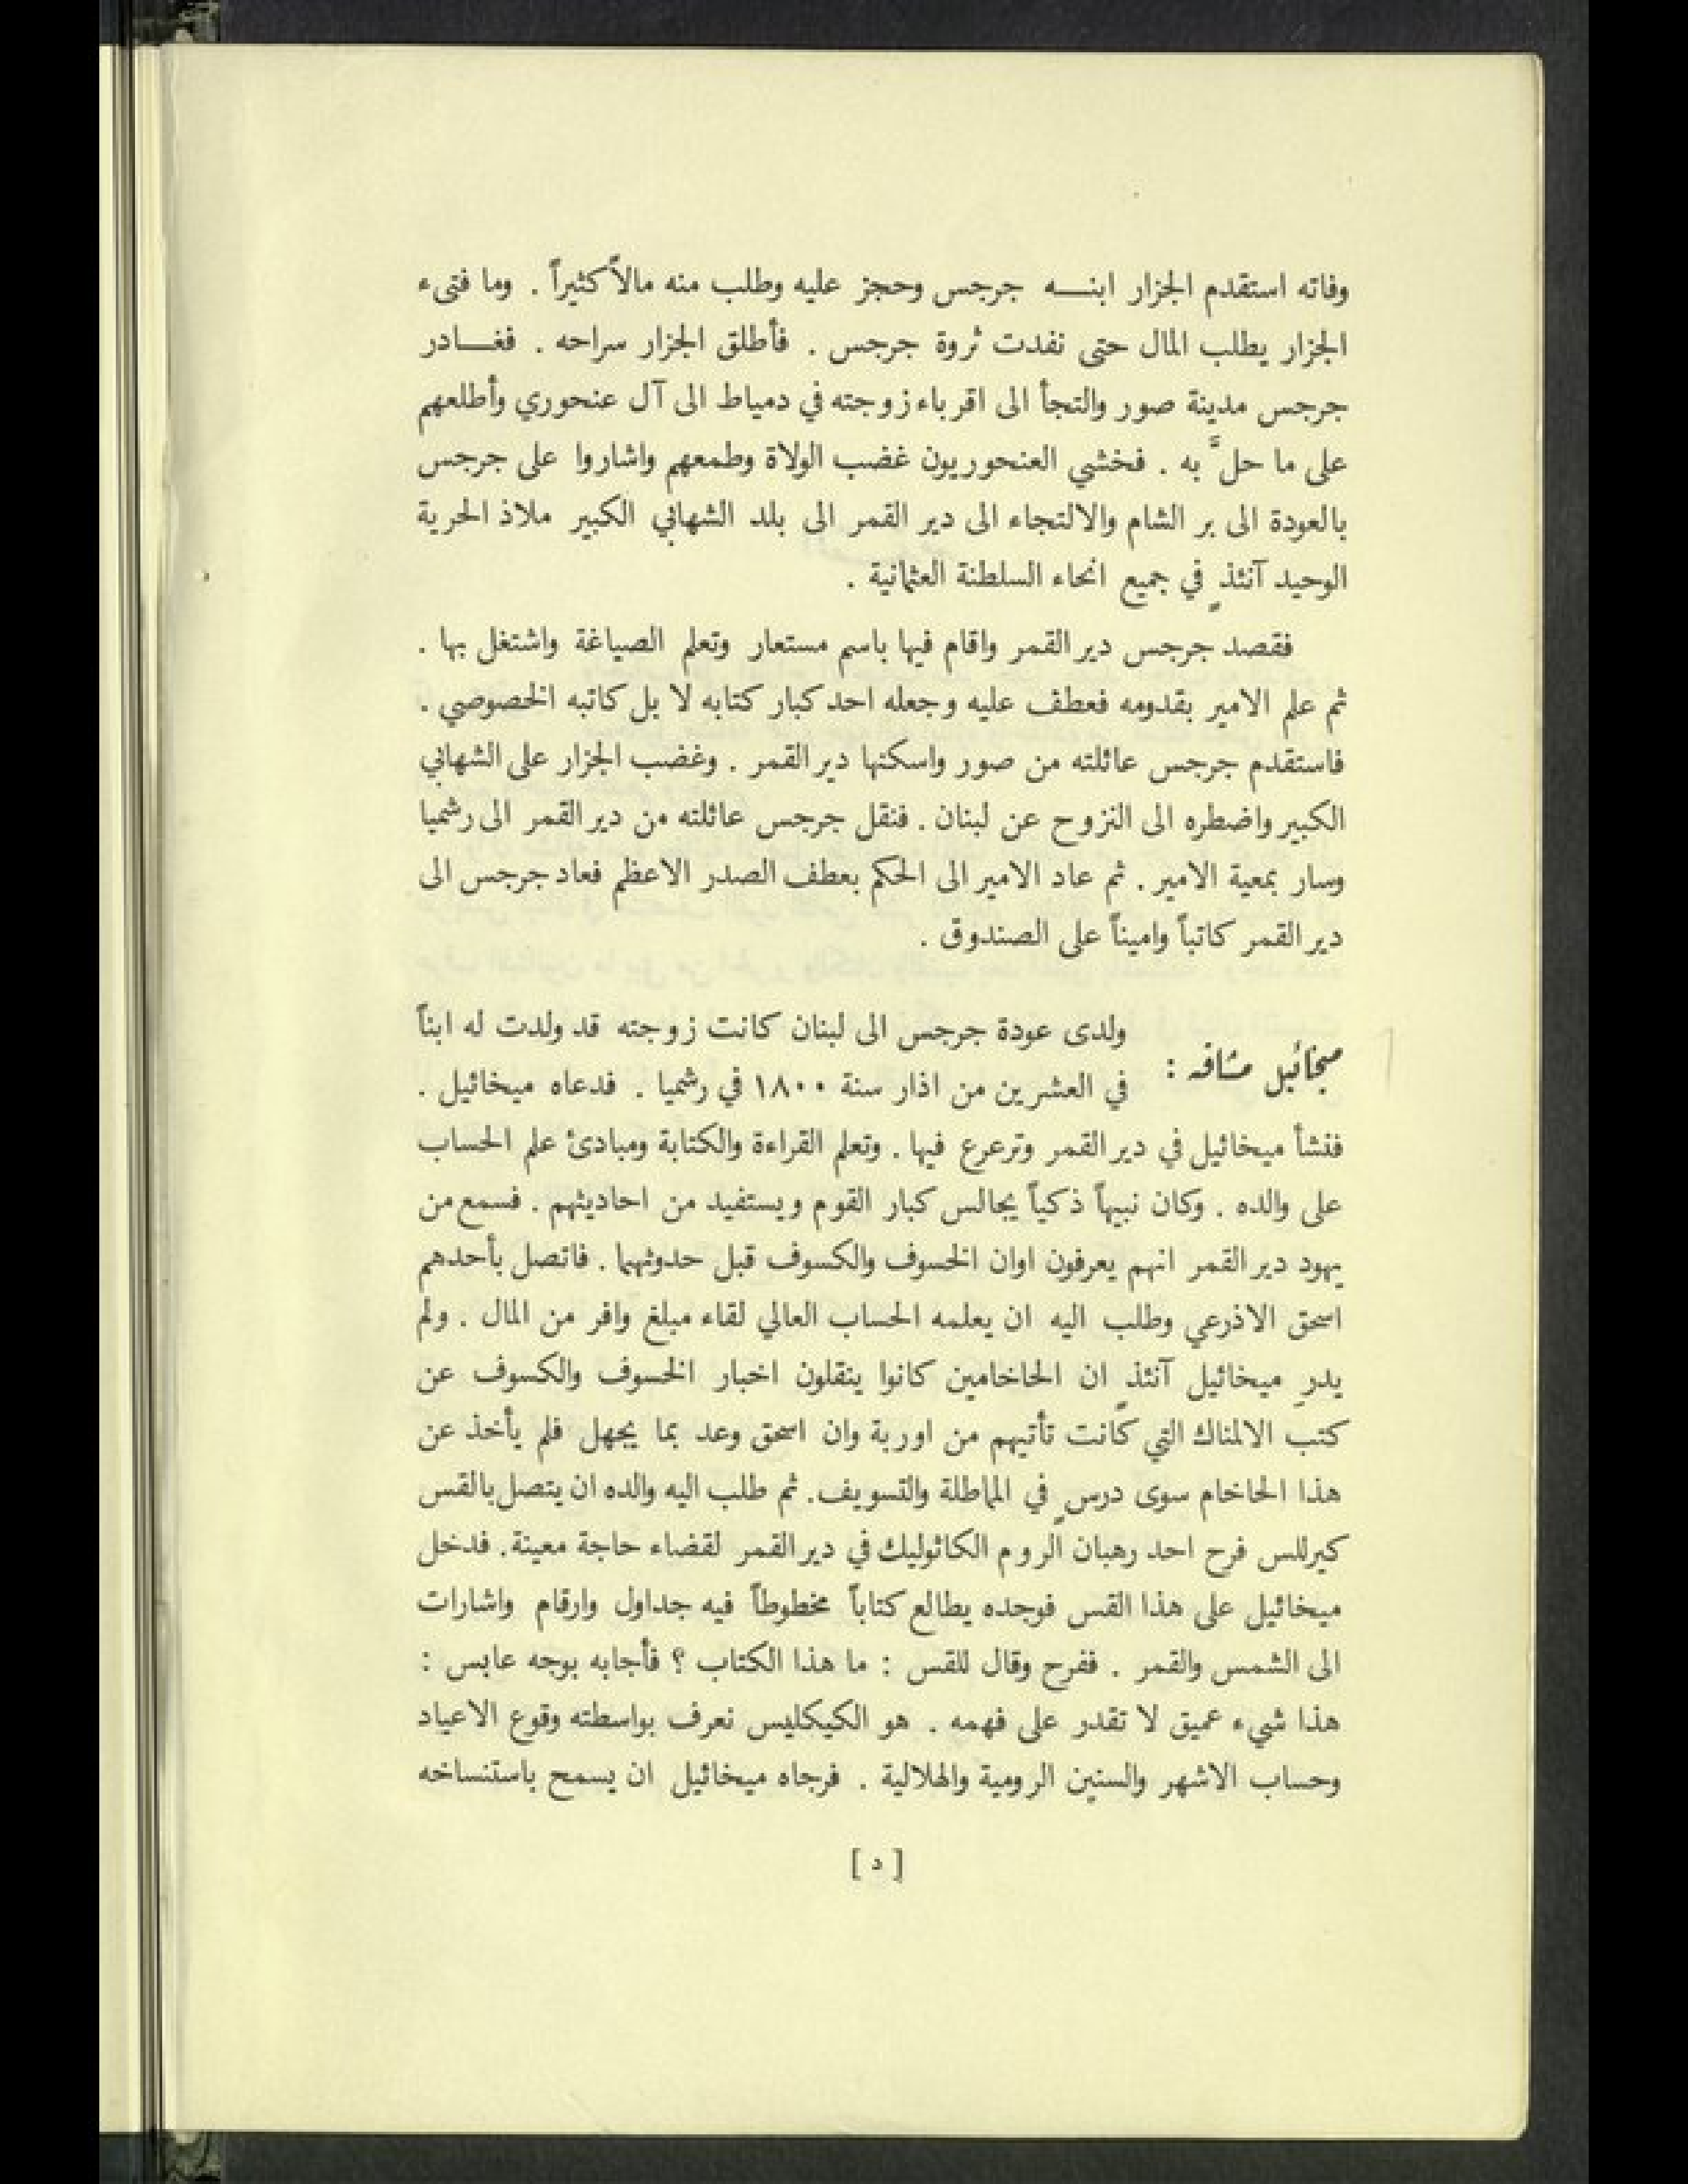 وفاته استقدم الجزار ابنـــه جرجس وحجز عليه وطلب منه مالاً كثيراً . وما فتىء
الجزار يطلب المال حتى نفدت ثروة جرجس . فأطلق الجزار سراحه . فغـــادر
جرجس مدينة صور والتجأ الى اقرباء زوجته في دمياط الى آل عنحوري وأطلعهم
على ما حلَّ به . فخشي العنحوريون غضب الولاة وطمعهم واشاروا على جرجس
بالعودة الى بر الشام والالتجاء الى دير القمر الى بلد الشهابي الكبير ملاذ الحرية
الوحيد آنئذٍ في جميع انحاء السلطنة العثمانية .
فقصد جرجس دير القمر واقام فيها باسم مستعار وتعلم الصياغة واشتغل بها .
ثم علم الامير بقدومه فعطف عليه وجعله احد كبار كتابه لا بل كاتبه الخصوصي .
فاستقدم جرجس عائلته من صور واسكنها دير القمر . وغضب الجزار على الشهابي
الكبير واضطره الى النزوح عن لبنان . فنقل جرجس عائلته من دير القمر الى رشميا
وسار بمعية الامير . ثم عاد الامير الى الحكم بعطف الصدر الاعظم فعاد جرجس الى
دير القمر كاتباً واميناً على الصندوق .
ميخائيل مشاقه :
ولدى عودة جرجس الى لبنان كانت زوجته قد ولدت له ابناً
في العشرين من اذار سنة ١٨٠٠ في رشميا . فدعاه ميخائيل .
فنشأ ميخائيل في دير القمر وترعرع فيها . وتعلم القراءة والكتابة ومبادئ علم الحساب
على والده . وكان نبيهاً ذكياً يجالس كبار القوم ويستفيد من احاديثهم . فسمع من
يهود دير القمر انهم يعرفون اوان الخسوف والكسوف قبل حدوثهما . فاتصل بأحدهم
اسحق الاذرعي وطلب اليه ان يعلمه الحساب العالي لقاء مبلغ وافر من المال . ولم
يدرِ ميخائيل آنئذٍ ان الحاخامين كانوا ينقلون اخبار الخسوف والكسوف عن
كتب الالمناك التي كانت تأتيهم من اوربة وان اسحق وعد بما يجهل فلم يأخذ عن
هذا الحاخام سوى درسٍ في المماطلة والتسويف. ثم طلب اليه والده ان يتصل بالقس
كيرللس فرح احد رهبان الروم الكاثوليك في دير القمر لقضاء حاجة معينة. فدخل
ميخائيل على هذا القس فوجده يطالع كتاباً مخطوطاً فيه جداول وارقام واشارات
الى الشمس والقمر . ففرح وقال للقس : ما هذا الكتاب ؟ فأجابه بوجه عابس :
هذا شيء عميق لا تقدر على فهمه . هو الكيكليس نعرف بواسطته وقوع الاعياد
وحساب الاشهر والسنين الرومية والهلالية . فرجاه ميخائيل ان يسمح باستنساخه
[ د ]